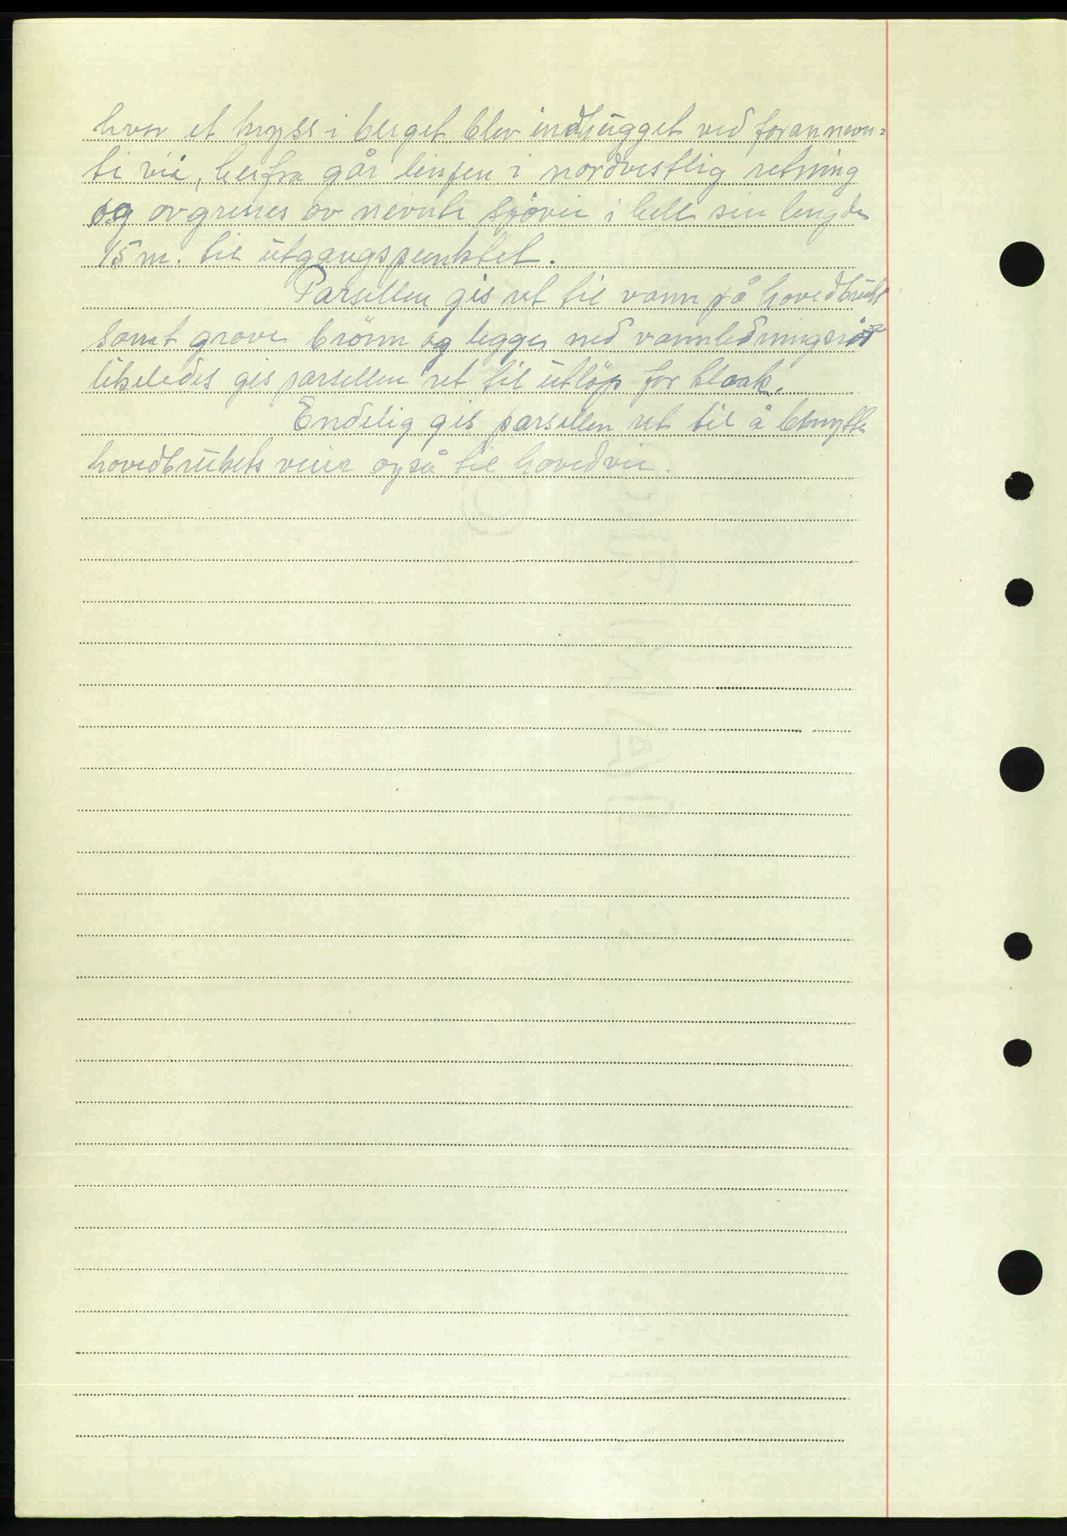 hvor et kryss i berget blev indhugget ved forannevn=
te vei, herfra går linjen i nordvestlig retning
og avgrenes av nevnte sjøvei i hele sin lengde
15 m. til utgangspunktet.
Parsellen gis ret til vann på hovedbruket
samt grave brönn og legge ned vannledningsrör
likeledes gis parsellen ret til utlöp for kloak.
Endelig gis parsellen ret til å benytte
hovedbrukets veier også til hovedvei.